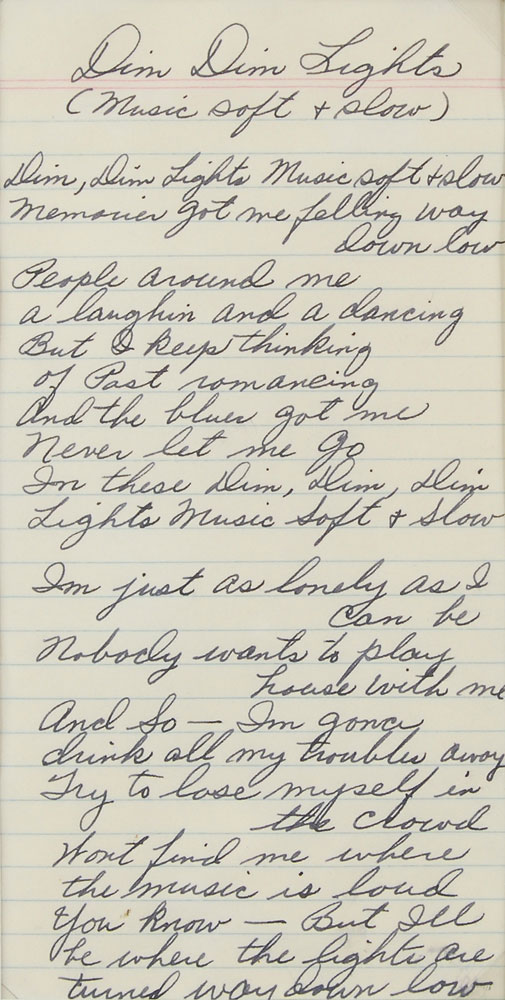 Dim Dim Lights
(Music soft + slow)
Dim, Dim Lights Music soft + slow
Memories got me felling way
down low
People around me
a laughin and a dancing
But I keep thinking
of Past romancing
And the blues got me
Never let me Go
In these Dim, Dim, Dim
Lights Music Soft + Slow
Im just as lonely as I
Can be
Nobody wants to play
house with me
And So — Im gona
drink all my troubles away
Try to lose myself in
the crowd
Wont find me where
the music is loud
You know — But Ill
be where the lights are
turned way down low